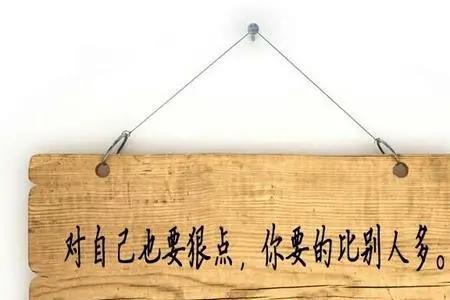 对自己也要狠点，你要的比别人多。